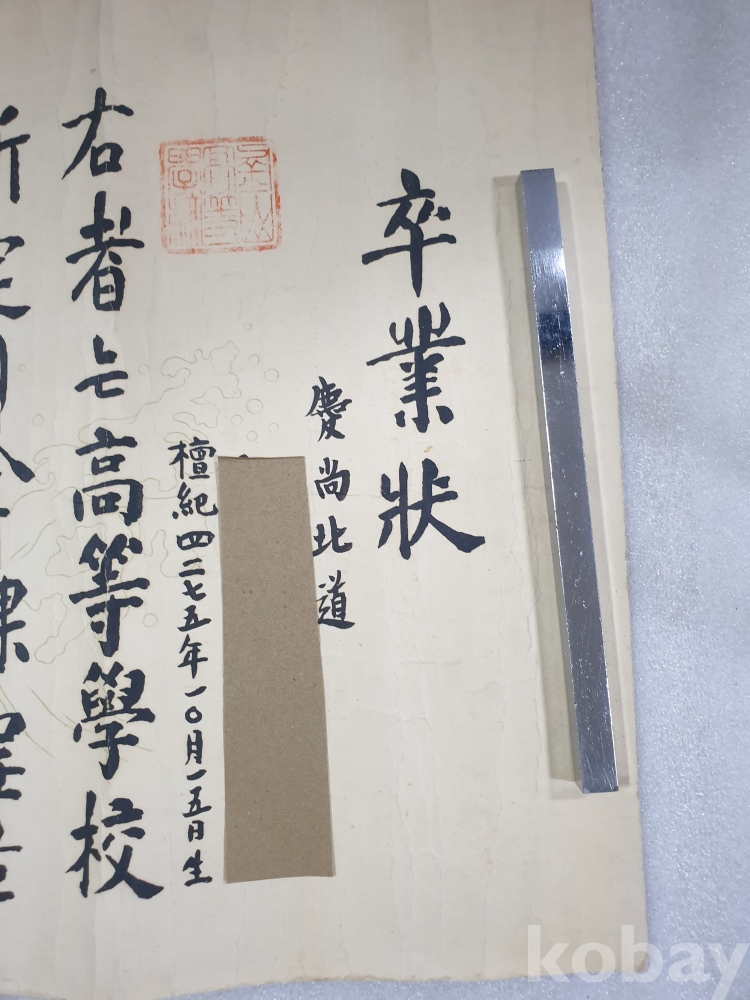 卒業狀
慶尙北道
檀紀四二七五年一〇月一五日生
右者는高等學校
定 課程
kobay